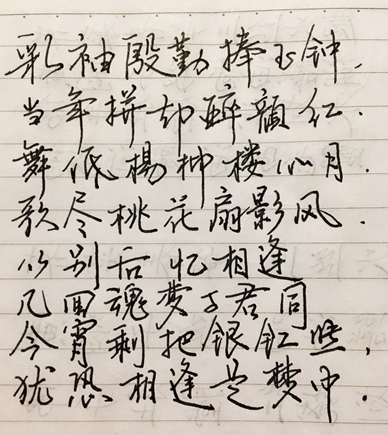 彩袖殷勤捧玉钟.
当年拼却醉颜红.
舞低楊柳楼心月.
歌尽桃花扇影风.
从别后忆相逢
几回魂梦与君同
今宵剩把银釭照,
犹恐相逢是梦中.